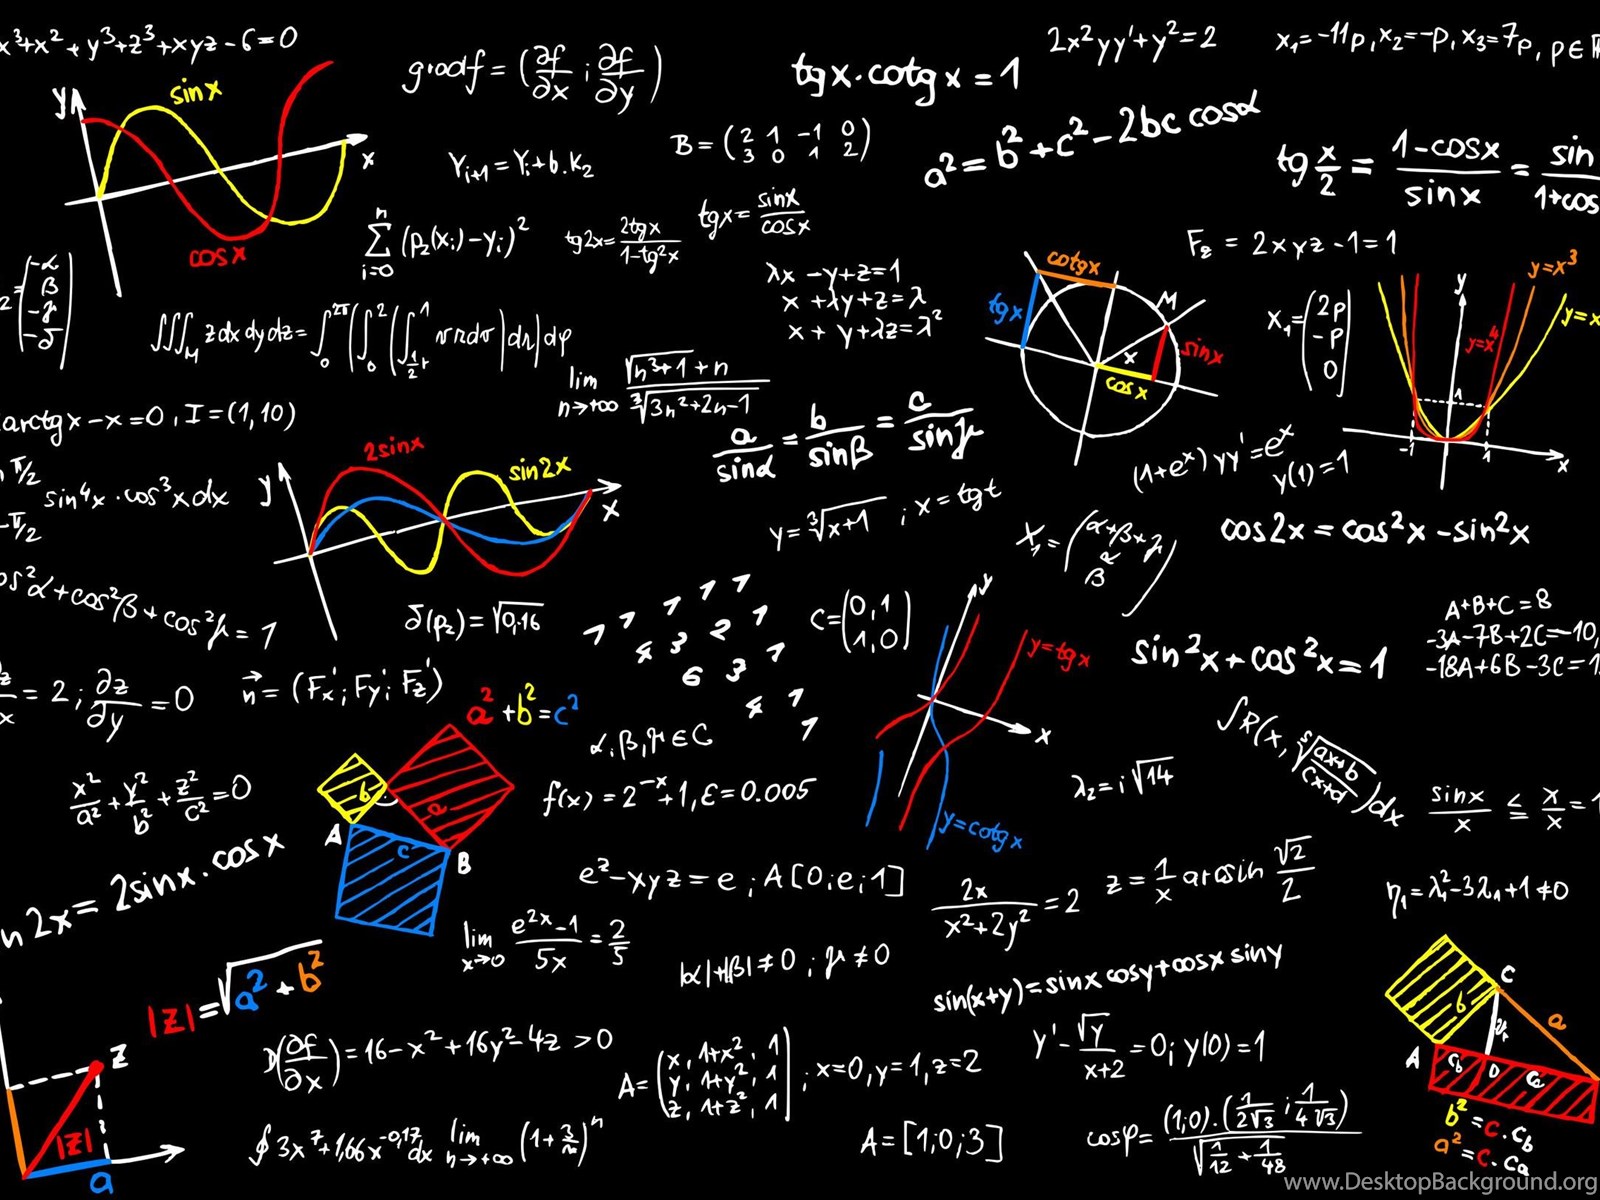 x³+x²+y³+z³+xyz-6=0
gradf = (∂f/∂x ; ∂f/∂y)
tgx·cotgx=1
2x²yy'+y²=2
x₁=-11p, x₂=-p, x₃=7p, p∈
y
sinx
x
cosx
Yᵢ₊₁=Yᵢ+b.K₂
B=(2 1 -1 0
3 0 1 2)
a²=b²+c²-2bc cosα
tg x/2 = 1-cosx/sinx = sin
1+cos
∑ⁿᵢ₌₀ (p₂(xᵢ)-yᵢ)²
tg2x=2tgx/1-tg²x
tgx=sinx/cosx
F₂ = 2xyz-1=1
-α
β
-γ
-δ
λx -y+z=1
x +λy+z=λ
x + y+λz=λ²
cotgx
tgx
M
x
sinx
cosx
X₁=(2p
-p
0)
y
y=x³
y=x
y=x⁴
1
-1
1
x
lim n→+∞ √n³+1+n / ³√3n²+2n-1
arctgx-x=0, I=(1,10)
a/sinα = b/sinβ = c/sinγ
(1+eˣ)yy'=eˣ
y(1)=1
π/2
-π/2
sin⁴x·cos³xdx
y
2sinx
sin2x
x
y=³√x+1 ; x=tgt
cos2x=cos²x-sin²x
os²α+cos²β+cos²γ=1
δ(p₂)=√0,16
1 1 1 1 1
4 3 2 1
6 3 1
4 1
1
C=(0,1
1,0)
y
y=tgx
x
y=cotgx
sin²x+cos²x=1
A+B+C=8
-3A-7B+2C=-10,
-18A+6B-3C=1
=2; ∂z/∂y=0
n⃗=(Fx'; Fy'; Fz')
a²+b²=c²
b
a
c
A
B
α,β,γ∈C
∫R(x, ⁵√ax+b/cx+d)dx
x²/a²+y²/b²+z²/c²=0
f(x)=2⁻ˣ+1, ε=0.005
λ₂=i√14
sinx/x ≤ x/x=1
n2x=2sinx.cosx
eᶻ-xyz=e; A[0;e;1]
2x/x²+2y²=2
z=1/x arcsin √2/2
η₁=λ₁²-3λ₁+1≠0
lim x→0 e²ˣ-1/5x=2/5
|α|+|β|≠0; γ≠0
sin(x+y)=sinx cosy+cosx siny
|z|=√a²+b²
z
|z|
a
(∂f/∂x)=16-x²+16y²-4z>0
A=(x, 1+x², 1
y, 1+y², 1
z, 1+z², 1); x=0, y=1, z=2
y'-√y/x+2=0; y(0)=1
C
b
a
A
D
b²=c.c_b
a²=c.c_a
∮3x⁷+1,66x⁻⁰·¹⁷dx
lim n→+∞ (1+3/n)ⁿ
A=[1;0;3]
cosφ=(1;0).(1/2√3 ; 1/4√3)/√1/12+1/48
www.DesktopBackground.org